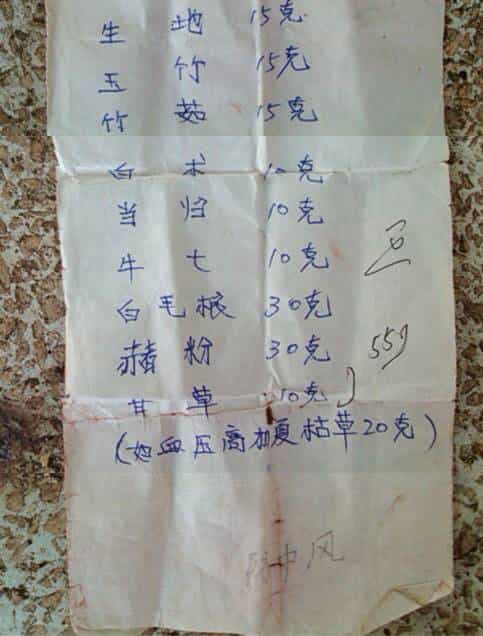 生地 15克
玉竹 15克
竹茹 15克
白术 10克
当归 10克
牛七 10克
白毛根 30克
赭粉 30克
559
甘草 10克
(如血压高加夏枯草20克)
防中风